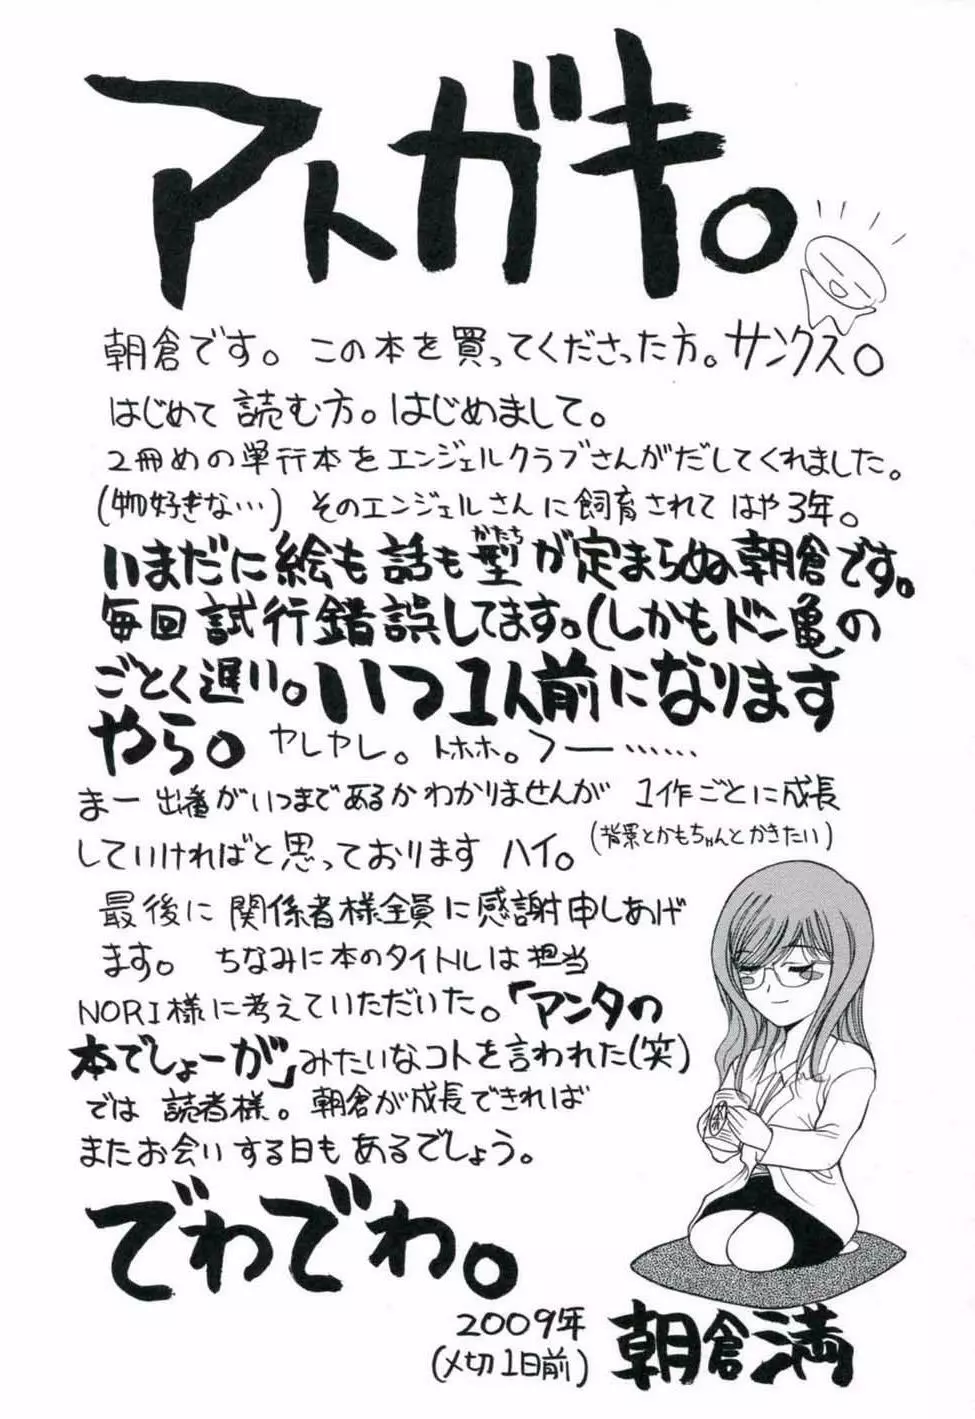 アトガキ。
朝倉です。この本を買ってくださった方。サンクス。
はじめて読む方。はじめまして。
2冊めの単行本をエンジェルクラブさんがだしてくれました。
(物好きな…)そのエンジェルさんに飼育されてはや3年。
いまだに絵も話も型かたちが定まらぬ朝倉です。
毎回試行錯誤してます。(しかもドン亀の
ごとく遅い。いつ1人前になります
やら。ヤレヤレ。トホホ。フー……
まー出番がいつまであるかわかりませんが 1作ごとに成長
していければと思っております ハイ。(背景とかもちゃんとかきたい)
最後に関係者様全員に感謝申しあげ
ます。ちなみに本のタイトルは担当
NORI様に考えていただいた。「アンタの
本でしょーが」みたいなコトを言われた(笑)
では読者様。朝倉が成長できれば
またお会いする日もあるでしょう。
でわでわ。
2009年
(〆切1日前)
朝倉満